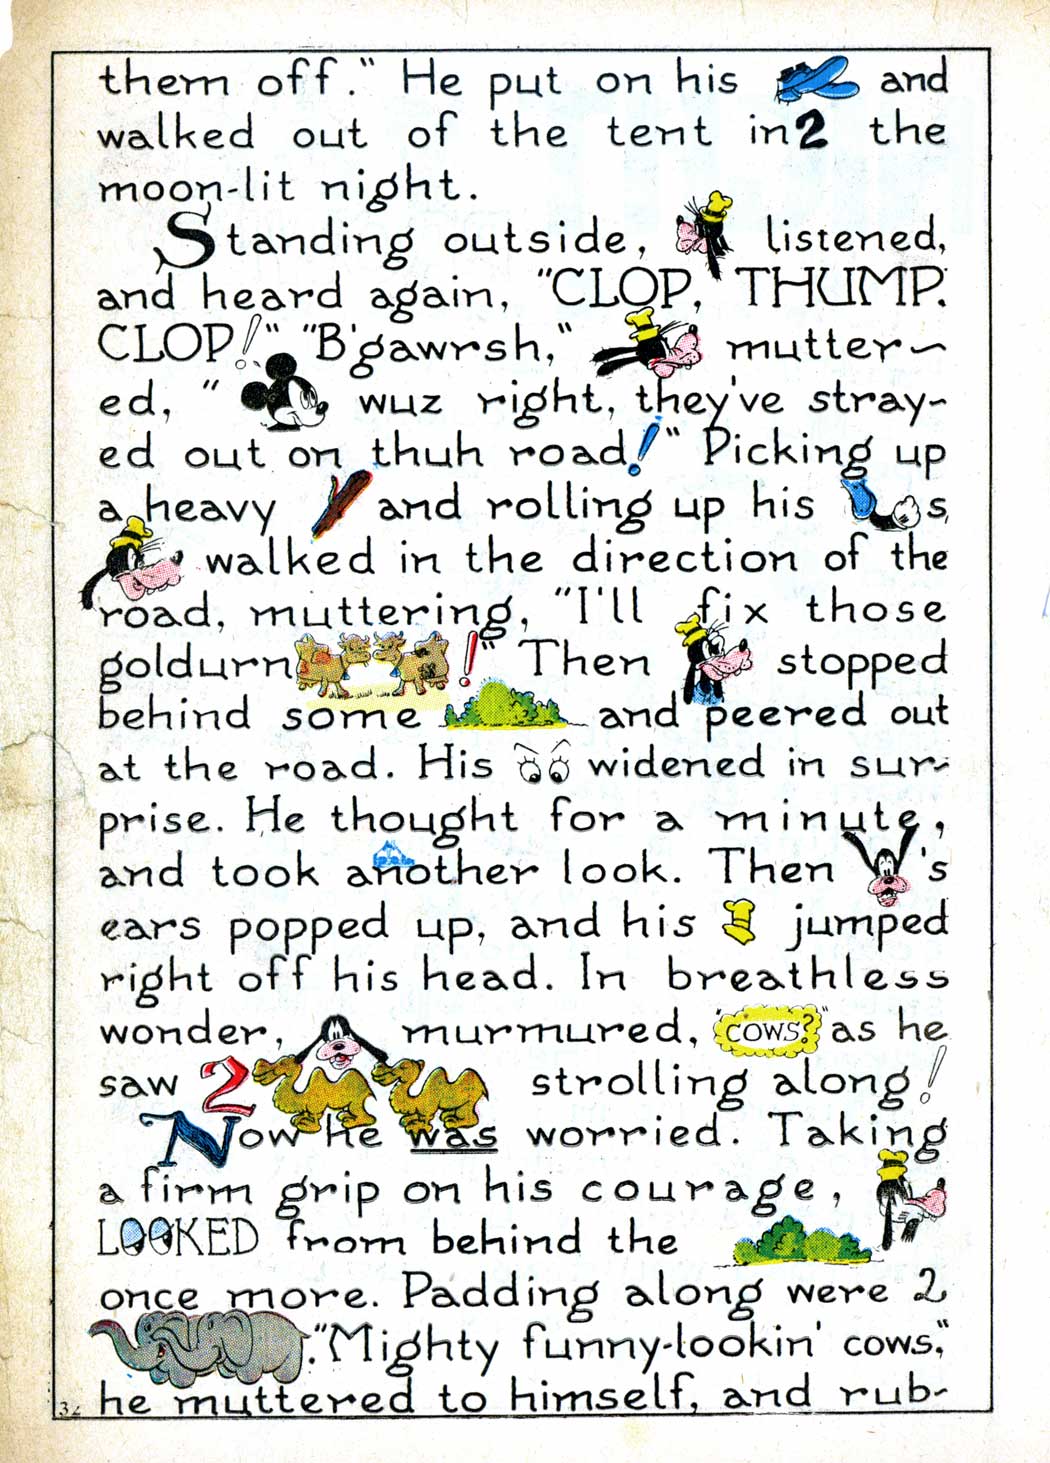 them off." He put on his and
walked out of the tent in 2 the
moon-lit night.
Standing outside, listened,
and heard again, "CLOP, THUMP,
CLOP!" "B'gawrsh," mutter-
ed, " wuz right, they've stray-
ed out on thuh road!" Picking up
a heavy and rolling up his s,
walked in the direction of the
road, muttering, "I'll fix those
goldurn !" Then stopped
behind some and peered out
at the road. His widened in sur-
prise. He thought for a minute,
and took another look. Then 's
ears popped up, and his jumped
right off his head. In breathless
wonder, murmured, "COWS?" as he
saw 2 strolling along!
Now he was worried. Taking
a firm grip on his courage,
LOOKED from behind the
once more. Padding along were 2
."Mighty funny-lookin' cows,"
he muttered to himself, and rub-
32